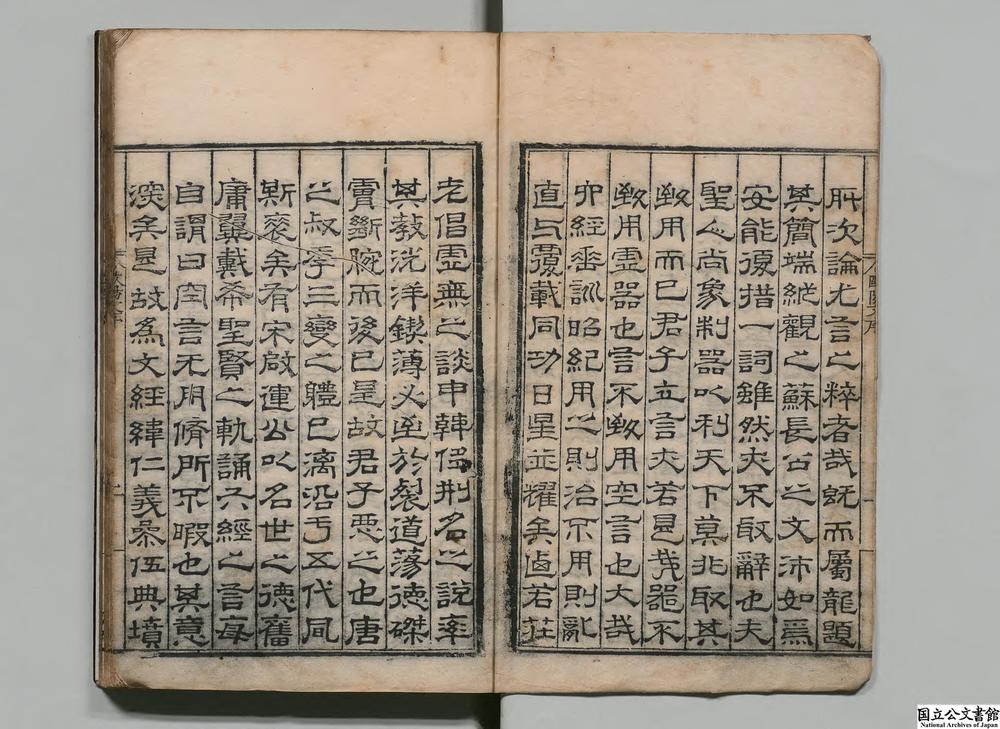 所次論尤言之粹者哉旣而屬龍題
其簡端縱觀之蘇長公之文沛如焉
安能復措一詞雖然夫不敢辭也夫
聖人尚象制器以利天下莫非取其
致用而已君子立言夫若是哉器不
致用虛器也言不致用空言也大哉
六經垂訓昭紀用之則治不用則亂
直与覆載同功日星並耀矣卤若莊
老倡虛無之談申韓侈刑名之說率
其教洸洋鍥薄必至於裂道蕩德磔
霣斷腕而後已是故君子惡之也唐
之叔季三變之體已漓沿于五代同
斯衰矣有宋啟運公以名世之德奮
庸翼戴希聖賢之軌誦六經之言每
自謂曰空言无用脩所不暇也其意
深矣是故爲文經緯仁義參伍典墳
國立公文書館
National Archives of Japan